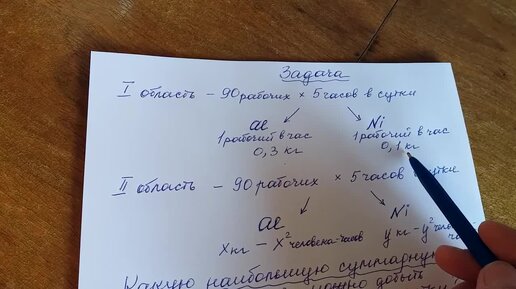 Задача
I область – 90 рабочих × 5 часов в сутки
Al Ni
1 рабочий в час 1 рабочий в час
0,3 кг 0,1 кг
II область – 90 рабочих × 5 часов в сутки
Al Ni
x кг – x² человека-часов y кг – y²
Какую наибольшую суммарную
можно добыть